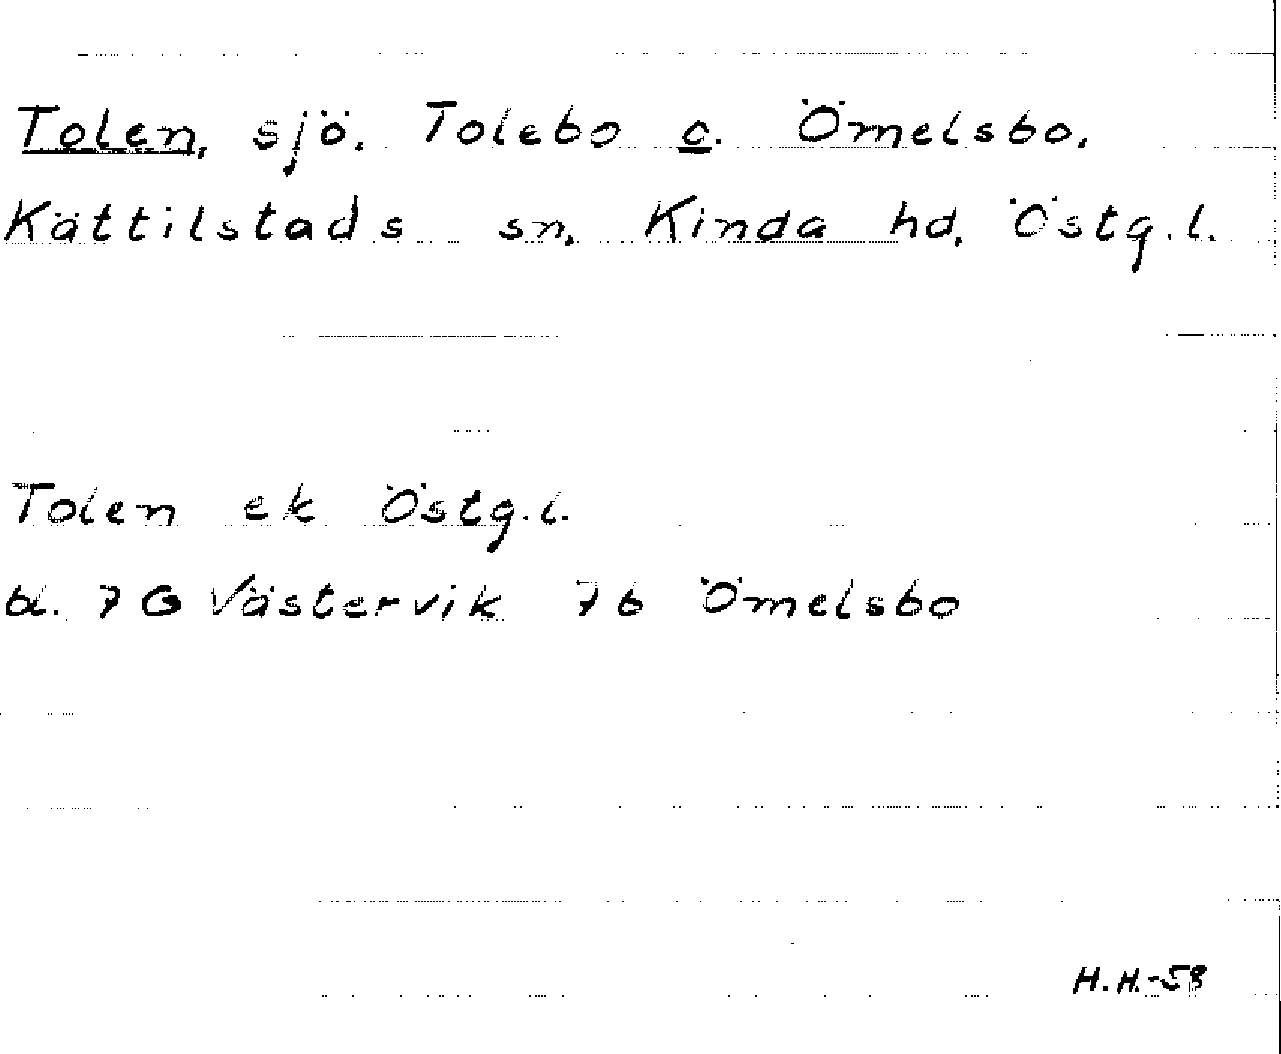 Tolen, sjö. Tolebo o. Ömelsbo.
Kättilstads sn, Kinda hd, Östg.l.
Tolen ek Östg.l.
bl. 7 G Västervik 7b Ömelsbo
H.H.-58